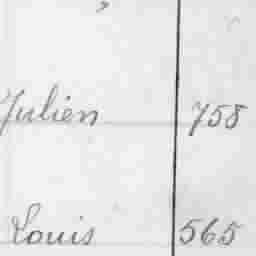 Julien 758
Louis 565